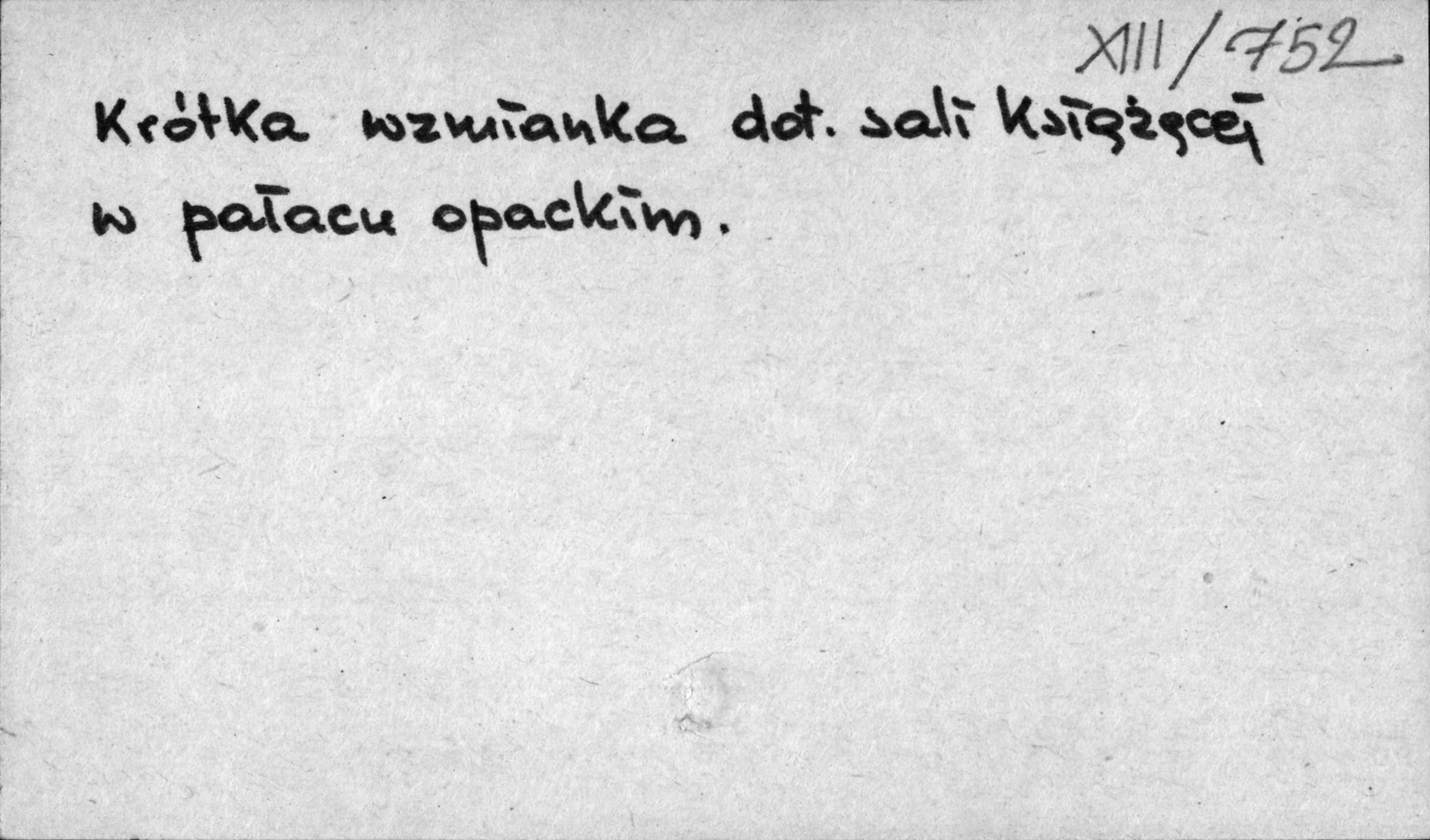 XIII/752
Krótka wzmianka dot. sali Książęcej
w pałacu opackim.